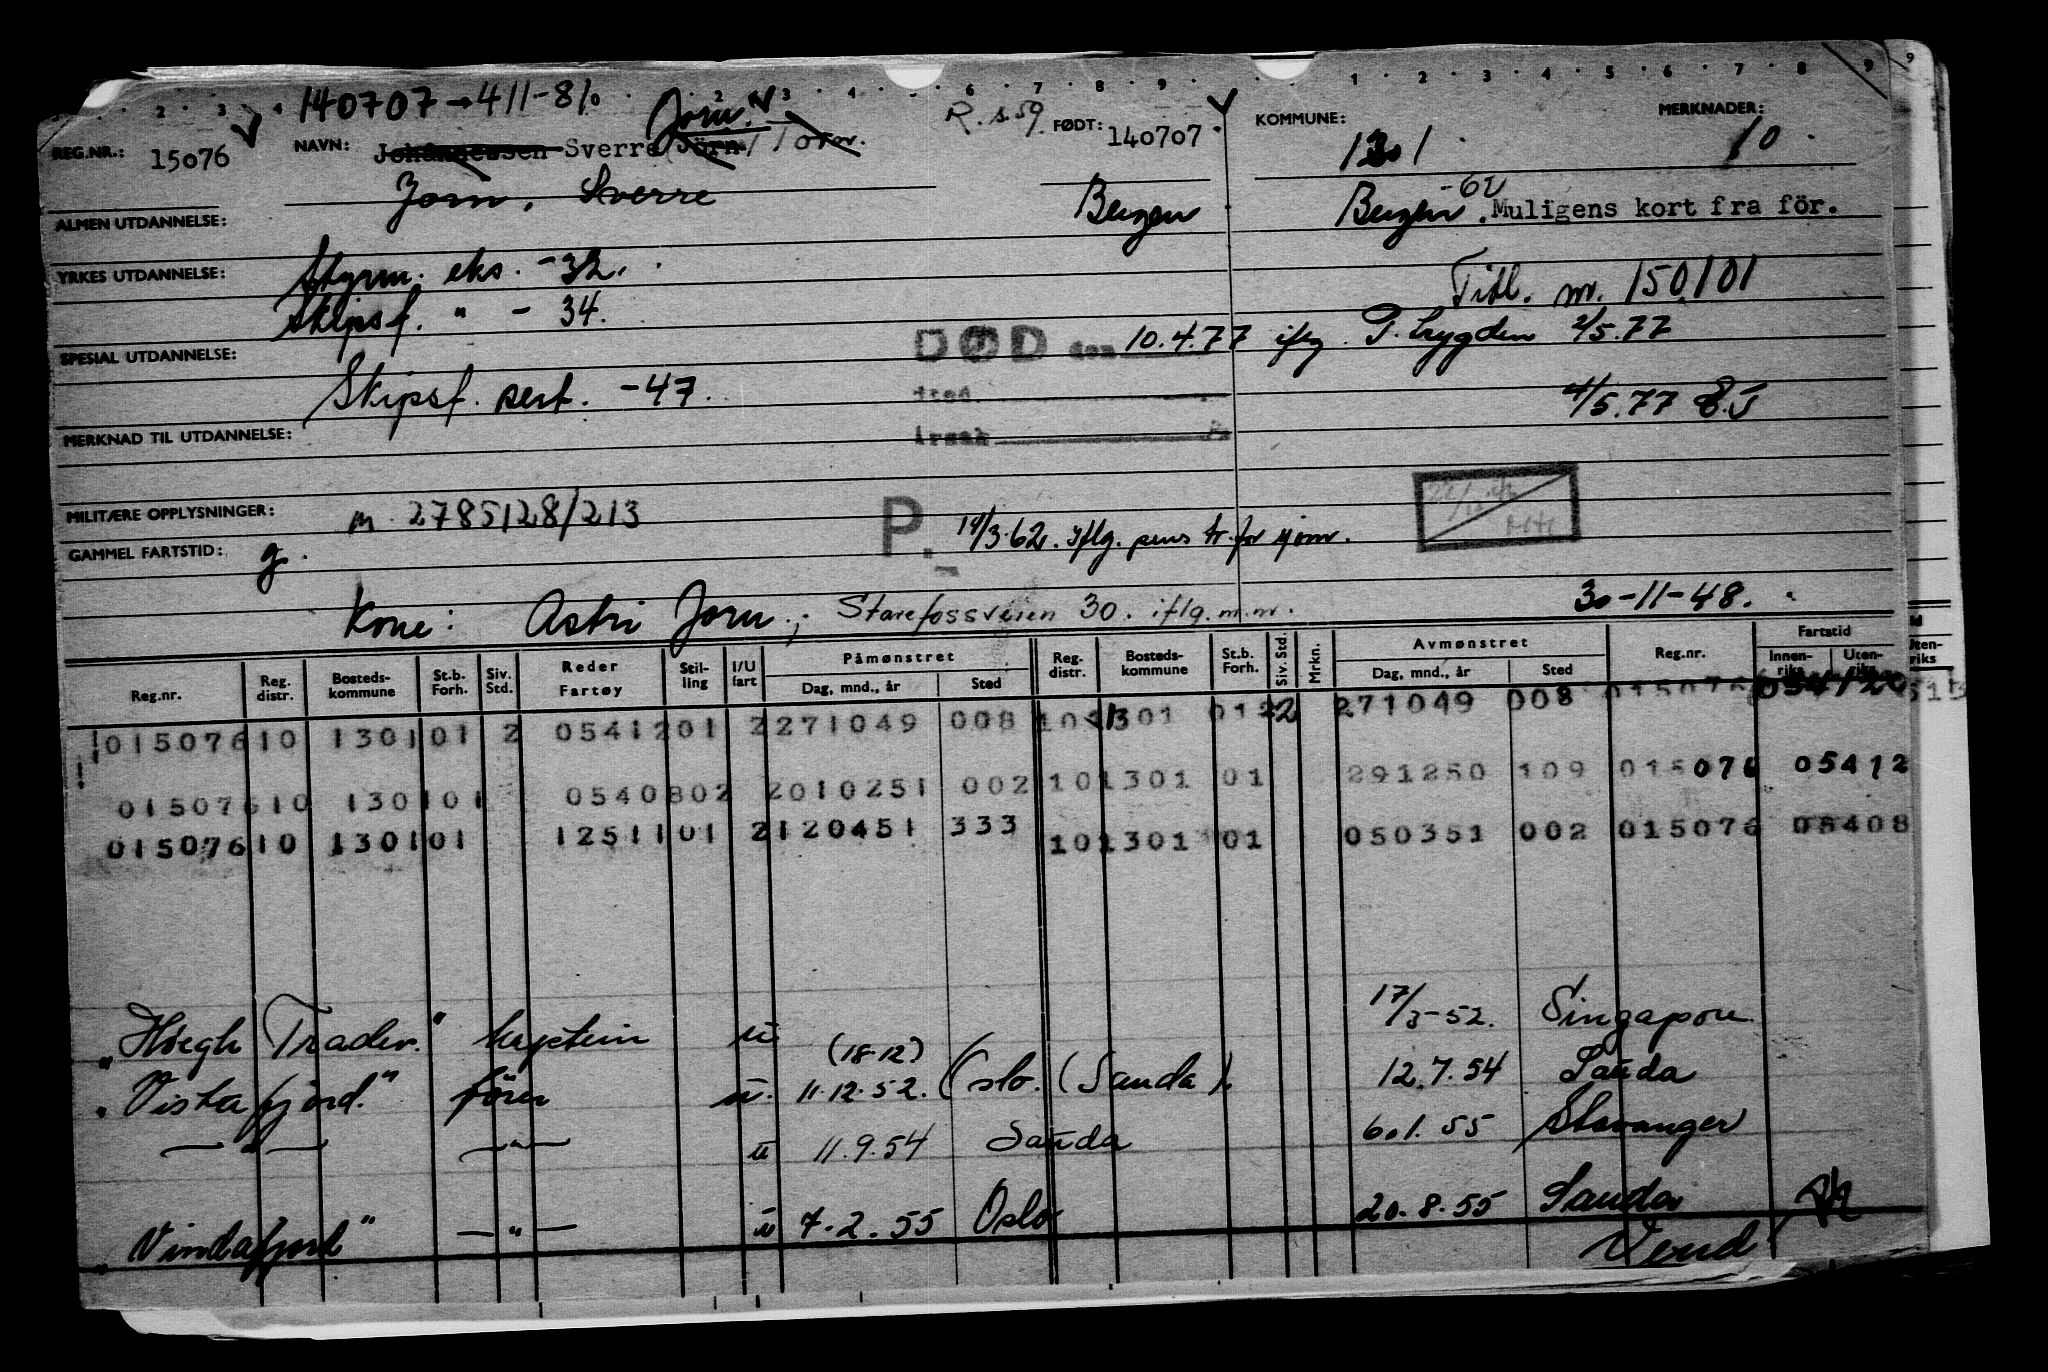 140707 → 411-81
2 3 4 2 3 4 6 7 8 9 1 2 3 4 5 6 7 8 9 9
REG.NR.: 15076 NAVN: Johannessen Sverre (Jörn) Jorn. FØDT: 140707 KOMMUNE: 1301 MERKNADER: 10
Jorn, Sverre Bergen Bergen -62 Muligens kort fra för.
ALMEN UTDANNELSE:
YRKES UTDANNELSE: Styrm. eks. -32. Tidl. nr. 150101
Skipsf. " - 34.
SPESIAL UTDANNELSE: DØD den 10.4.77 iflg. 2/5.77
Skipsf. sert. -47. sted 4/5.77
MERKNAD TIL UTDANNELSE: årsak
MILITÆRE OPPLYSNINGER: m. 2785128/213 P. 14/3.62. Iflg. pens tr. for sjöm.
GAMMEL FARTSTID: g.
Kone: Astri Jorn.; Starefossveien 30. iflg. m.m. 30-11-48.
Reg.nr. Reg. distr. Bosteds- kommune St.b. Forh. Siv. Std. Reder Fartøy Stil- ling I/U fart Påmønstret Dag, mnd., år Sted Reg- distr. Bosteds- kommune St.b. Forh. Siv. Std. Mrkn. Avmønstret Dag, mnd., år Sted Reg.nr. Fartstid Innen- riks Uten- riks
015076 10 1301 01 2 0541201 2 271049 008 10 1301 01 2 271049 008 015076 054120
015076 10 1301 01 0540802 2 010251 002 10 1301 01 291250 109 015076 05412
015076 10 1301 01 1251101 2 120451 333 10 1301 01 050351 002 015076 05408
"Høegh Trader." kaptein u 17/3-52. Singapore
"Vistafjord." förer u. (18.12) 11.12.52. Oslo. (Sauda) 12.7.54 Sauda
— " — — " — u 11.9.54 Sauda 6.1.55 Stavanger
"Vindafjord" — " — u 7.2.55 Oslo 20.8.55 Sauda
Vend!